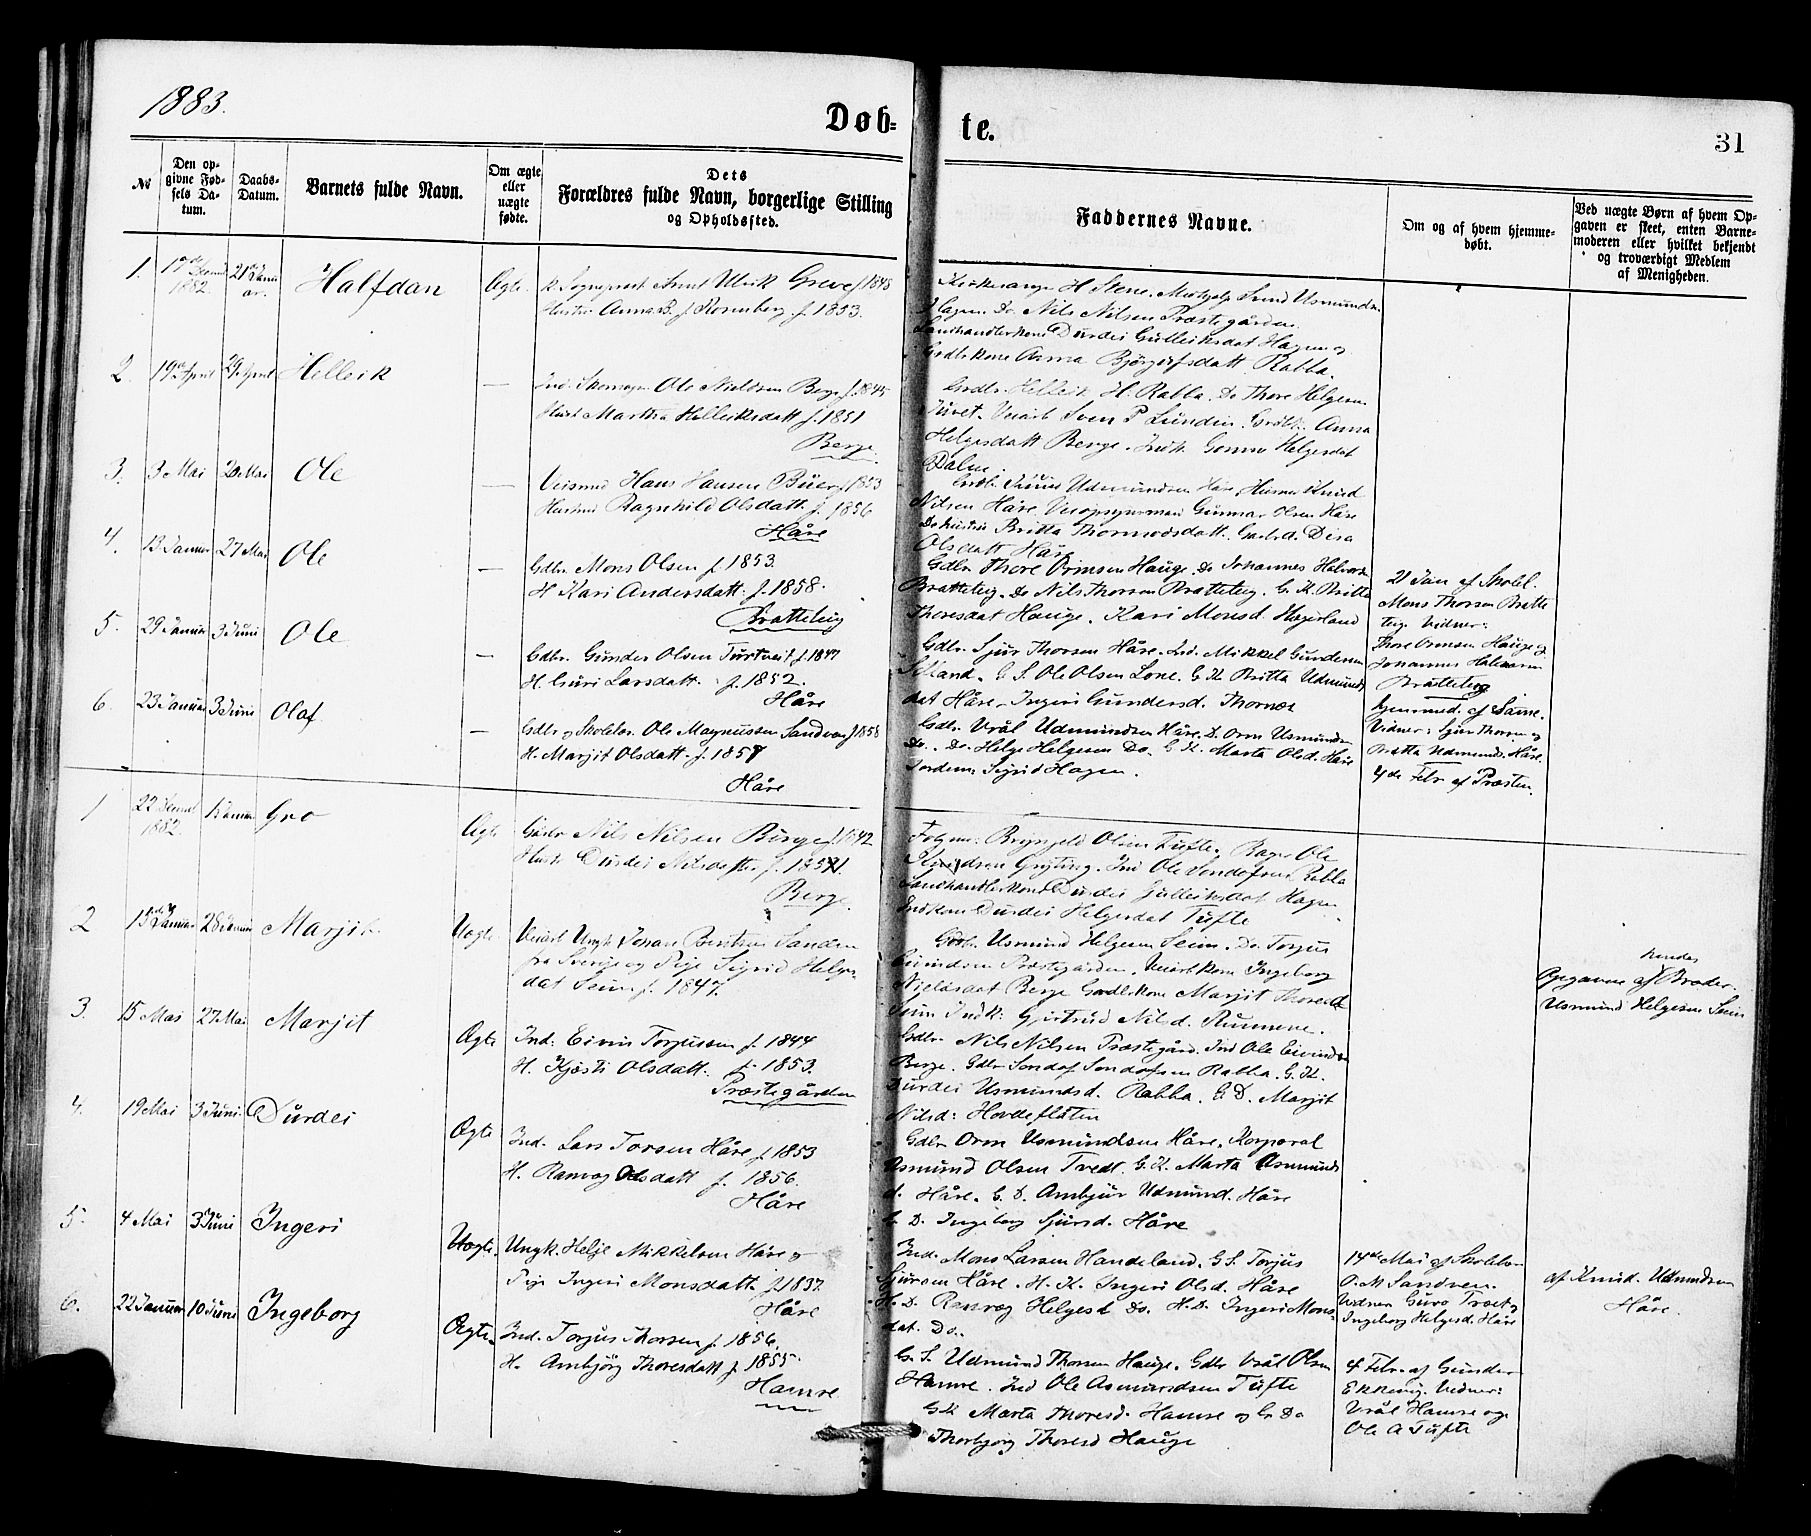 1883.
Døb-
te.
31
№
Den op-
givne Fød-
sels Da-
tum.
Daabs-
Datum.
Barnets fulde Navn.
Om ægte
eller
uægte
fødte.
Dets
Forældres fulde Navn, borgerlige Stilling
og Opholdssted.
Faddernes Navne.
Om og af hvem hjemme-
døbt.
Ved uægte Børn af hvem Op-
gaven er skeet, enten Barne-
moderen eller hvilket bekjendt
og troværdigt Medlem
af Menigheden.
1.
1882.
Halfdan
Ægte
Greve f. 1848
Hustru Anna B. f. Rosenberg f. 1853.
Kirkesanger H Stene.
Do Nils Nilsen Præstegården.
Landhandlerkone Durdei Gulleiksdat Hagen og
Gdbrkone Anna Bjørgufsdatt Rabba.
2.
19de April
29 April
Helleik
—
Ind. Ole Nielsen Berge f. 1845
Hust Martha Helleiksdatt f. 1851
Berge
Gdbr Helleik H. Rabba. Do Thore Helgesen
Sven P Lunden. Anna
Helgesdatt Berge. Gonne Helgesdat
Dalen.
3.
3 Mai
20 Mai
Ole
—
Hans Hansen Buer f. 1853
Hustru Ragnhild Olsdatt. f. 1856
Håre
Udmundsen Håre, Husm Knud
Nilsen Håre. Gunnar Olsen Håre
Do hustru Britta Thormodsdatt.
Olsdatt Håre
4.
13 Januar
27 Mai
Ole
—
Gdbr. Mons Olsen f. 1853.
H. Kari Andersdatt. f. 1858.
Bratteteig
Gdbr Thore Ormsen Hauge. Do Johannes Halvorsen
Bratteteig. Do Nils Thorsen Bratteteig. G. K. Britta
Thoresdat Hauge. Kari Monsd. Hægerland
21 Jan af Skolel.
Mons Thorsen Bratte
teig. Vidner:
Thore Ormsen Hauge og
Johannes Halvorsen
Bratteteig
5.
29 Januar
3 Juni
Ole
—
Gdbr. Gunder Olsen Turtveit f. 1847
H. Guri Larsdatt. f. 1852.
Håre
Gdbr. Sjur Thorsen Håre. Ind. Mikkel Gundersen
G. S. Ole Olsen Lone. G. K. Britta Udmunds
dat Håre. Ingeri Gundersd. Thornes
Hjemmed. af Samme.
Vidner: Sjur Thorsen og
Britta Udmunds. Håre.
6.
23 Januar
3 Juni
Olaf
—
Gdbr og Skolelær. Ole Magnussen Sandven f. 1858
H. Marjit Olsdatt. f. 1857
Håre
Gdbr. Vrål Udmundsen Håre. D. Orm Usmundsen
Do. Do. Helge Helgesen Do. G. K. Marta Olsd. Håre
Jordem: Sigrid Hagen.
4de Febr af Præsten.
1
1882.
Gro
Ægte
Gdbr Nils Nilsen Berge f. 1842
Hustr Durdei Nilsdatter f. 1851.
Berge
Brynjeld Olsen Tufte. Ole
Ind Ole Sondofsen Rabba
Landhandlerkone Durdei Gulleiksdat Hagen
Indkone Durdei Helgesdat Tufte
2
13de Januar
28 Januar
Marjit
Uægte
Ungk Johan Sanden
fra Sverige og Pige Sigrid Helges
dat Seim f. 1847.
Gdbr. Usmund Helgesen Seim. Do Torjus
Eivindsen Præstegården. Ingeborg
Berge Gårdbrkone Marjit Thoresd
Seim Indk: Gjertrud Nilsd. Rummene.
hendes
Opgaven af Broder
Usmund Helgesen Seim
3.
15 Mai
27 Mai
Marjit
Ægte
Ind: Eivin Torjussen f. 1844
H. Kjesti Olsdatt. f. 1853.
Præstegården
Gdbr. Nils Nilsen Præstegård. Ind Ole Eivindsen
Berge. Gdbr Sondof Sondofsen Rabba. G. K.
Durdei Usmundsd. Rabba. G. D. Marjit
Nilsd: Hovdefloten
4.
19 Mai
3 Juni.
Durdei
Ægte
Ind. Lars Torsen Håre f. 1853
H. Ranvog Olsdatt f. 1856.
Håre
Gdbr Orm Usmundsen Håre. Korporal
Asmund Olsen Tvedt. G. K. Marta Asmunds
d. Håre. G. D. Ambjør Udmund. Håre
G. D. Ingeborg Sjursd. Håre
5.
4 Mai
3 Juni
Ingeri
Uægte.
Ungk. Helje Mikkelsen Håre og
Pige Ingeri Monsdatt. f. 1837.
Håre
Ind. Mons Larsen Handeland. G. S. Torjus
Sjursen Håre. H. K. Ingeri Olsd. Håre
H. D. Ranveg Helgesd Do. H. D. Ingeri Mons-
dat. Do.
14de Mai af Skolelær
O. M Sandven.
Vidner Guro Træet og
Ingeborg Helgesd. Håre
af Knud. Udmundsen
Håre.
6.
22 Januar
10 Juni
Ingeborg
Ægte.
Ind. Torjus Thorsen f. 1856.
H. Ambjörg Thoresdatt f. 1855.
Hamre
G. S. Udmund Thorsen Hauge. Gdbr Vrål Olsen
Hamre. Ind Ole Asmundsen Tufte
G K Marta Thoresd. Hamre og G. D.
Thorbjørg Thoresd Hauge
4 Febr. af Gunder
Ekkeing. Vidner:
Vrål Hamre og
Ole A Tufte